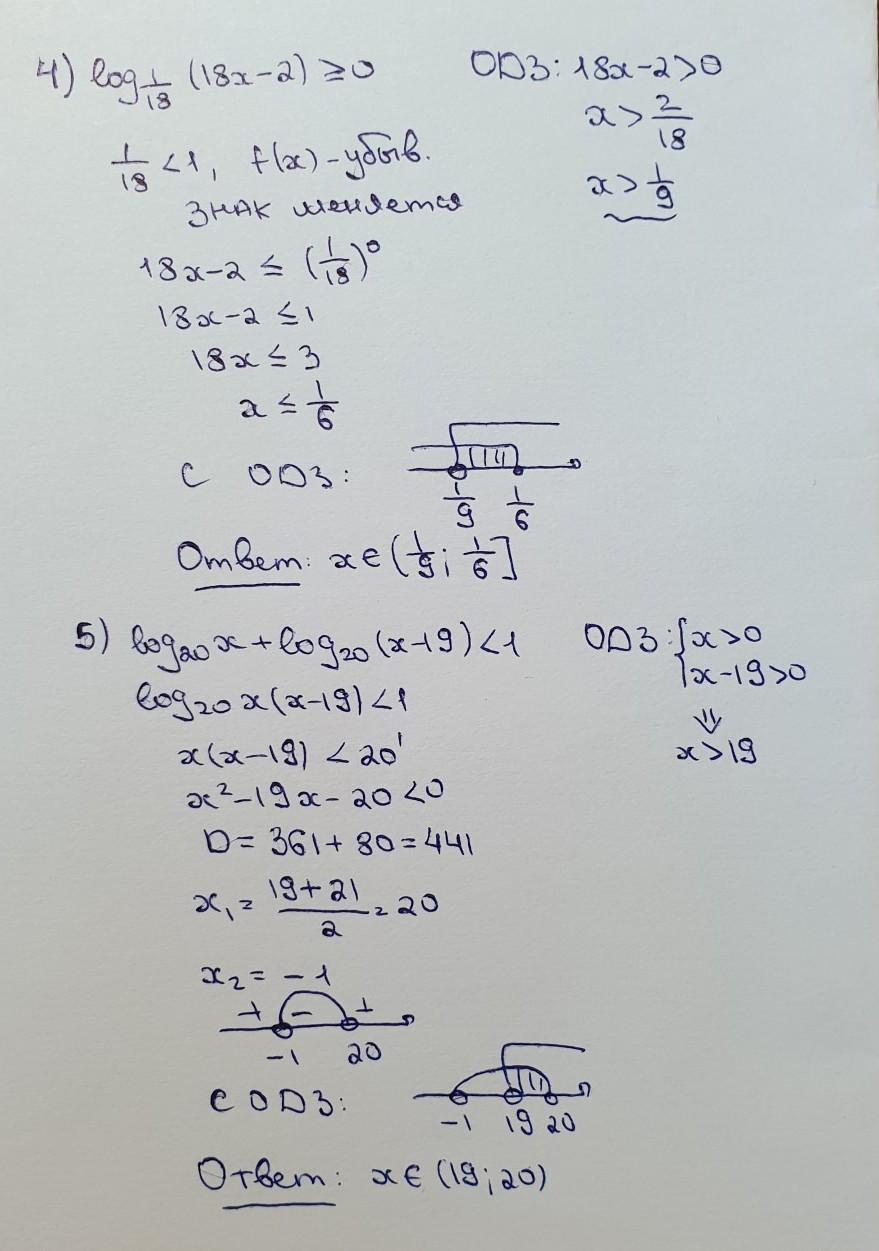 4) log_{1/18} (18x-2) ≥ 0
ОДЗ: 18x-2>0
x > 2/18
x > 1/9
1/18 < 1, f(x) - убыв.
знак меняется
18x-2 ≤ (1/18)^0
18x-2 ≤ 1
18x ≤ 3
x ≤ 1/6
С ОДЗ:
1/9 1/6
Ответ: x ∈ (1/9; 1/6]
5) log_{20} x + log_{20} (x-19) < 1
ОДЗ: { x>0
x-19>0
⇓
x>19
log_{20} x(x-19) < 1
x(x-19) < 20^1
x^2-19x-20<0
D = 361+80=441
x_1 = (19+21)/2 = 20
x_2 = -1
+ - +
-1 20
С ОДЗ:
-1 19 20
Ответ: x ∈ (19; 20)